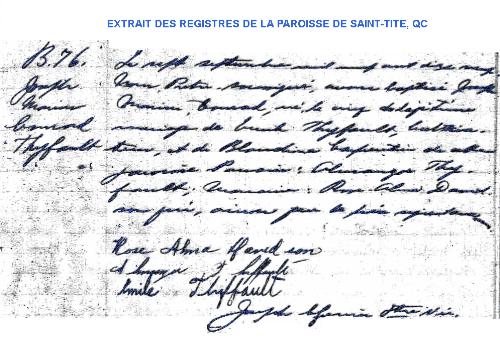 EXTRAIT DES REGISTRES DE LA PAROISSE DE SAINT-TITE, QC
B. 76.
Joseph
Marius
Conrad
Thiffault
Le sept septembre mil neuf cent dix neuf
nous Prêtre soussigné, avons baptisé Joseph
Conrad, né le cinq
mariage de Emile Thiffault, cultiva-
teur, et de Blandine Carpentier de cette
paroisse Parrain: Almanzor Thif-
fault; Marraine: Rose Alma David-
son qui, ainsi que le père
Rose Alma Davidson
Thiffault
Emile Thiffault
Joseph Ptre Vic.